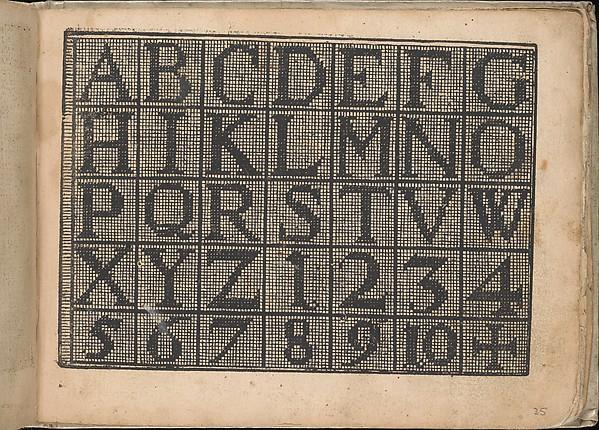 A B C D E F G
H I K L M N O
P Q R S T V W
X Y Z 1. 2 3 4
5 6 7 8 9 10 +
25